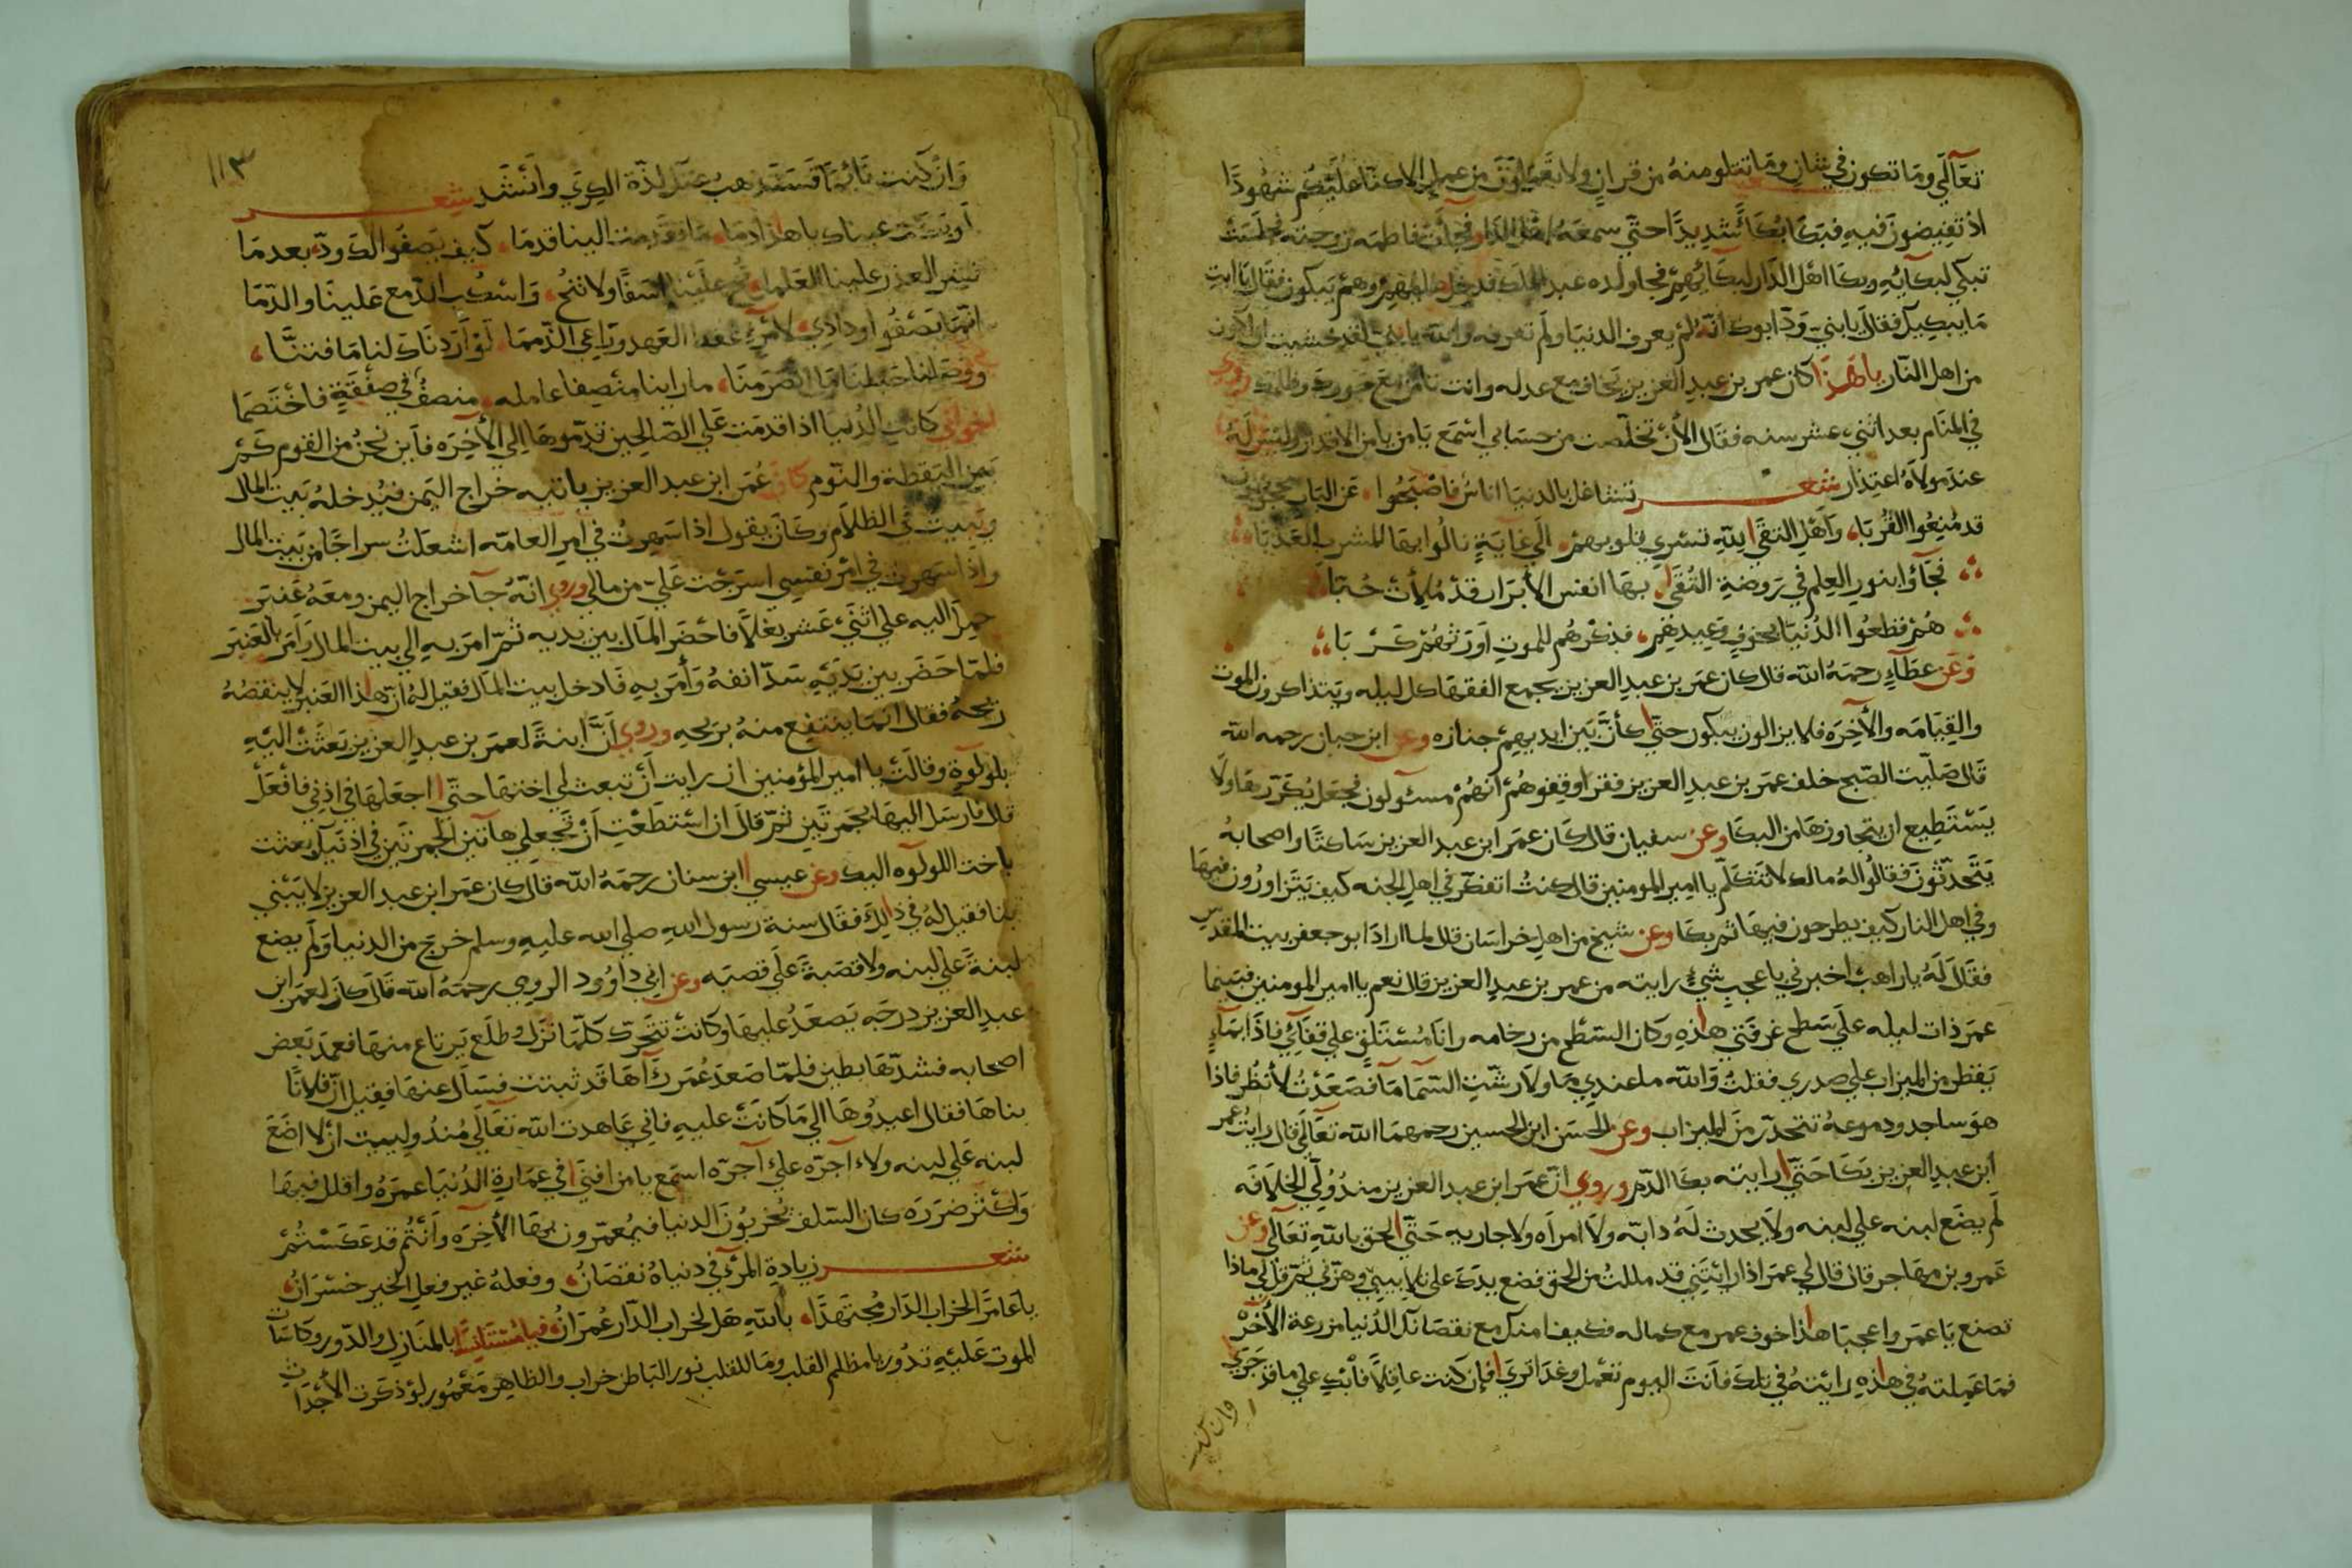 تعالي وما تكون في شان وما تتلو منه من قران ولا تعملون من عمل الا كنا عليكم شهودا
اذ تفيضون فيه فبكا بكاء شديدا حتي سمعه اهل الدار فجات فاطمه زوجته فجلست
تبكي لبكايه وبكا اهل الدار لبكايهم فجا ولده عبد الملك فدخل عليهم وهم يبكون فقال يا ابت
ما يبكيك فقال يا بني ود ابوك انه لم يعرف الدنيا ولم تعرفه والله يا بني لقد خشيت ان اكون
من اهل النار يا هذا كان عمر بن عبد العزيز يخاف مع عدله وانت تامن مع جورك وظلمك روي
في المنام بعد اثني عشر سنه فقال الان تخلصت من حسابي اسمع يا من يامن الاقدار وليس له
عند مولاه اعتذار شعر تشاغل بالدنيا اناس فاصبحوا عن الباب محجوبون
قد منعوا القربا واهل التقي لله تسري قلوبهم الي غاية نالوا بها المشرب العذبا
فجاؤا بنور العلم في روضة التقي بها انفس الابرار قد ملات حبا
هم قطعوا الدنيا بخوف وعيدهم فذكرهم للموت اورثهم كربا
وعن عطاء رحمه الله قال كان عمر بن عبد العزيز يجمع الفقها كل ليله ويتذاكرون الموت
والقيامه والاخره فلا يزالون يبكون حتي كأن بين ايديهم جنازه وعن ابن حبان رحمه الله
قال صليت الصبح خلف عمر بن عبد العزيز فقرا وقفوهم انهم مسئولون فجعل يكررها ولا
يستطيع ان يتجاوزها من البكا وعن سفيان قال كان عمر ابن عبد العزيز ساكتا واصحابه
يتحدثون فقالوا له مالك لا تتكلم يا امير المومنين قال كنت اتفكر في اهل الجنه كيف يتزاورون فيها
وفي اهل النار كيف يطرحون فيها ثم بكا وعن شيخ من اهل خراسان قال لما اراد ابو جعفر بيت المقدس
فقال له يا راهب اخبرني باعجب شيء رايته من عمر بن عبد العزيز قال نعم يا امير المومنين فبينما
عمر ذات ليله علي سطح غرفتي هذه وكان السطح من رخامه وانا مستلق علي قفاي فاذا بماء
يقطر من الميزاب علي صدري فقلت والله ما عندي ما ولا رشت السما ما فصعدت لانظر فاذا
هو ساجد ودموعه تتحدر من الميزاب وعن الحسن ابن الحسين رحمهما الله تعالي قال رايت عمر
ابن عبد العزيز بكا حتي رايته بكا الدم وروي ان عمر ابن عبد العزيز منذ ولي الخلافه
لم يضع لبنه علي لبنه ولا يحدث له دابه ولا امراه ولا جاريه حتي لحق بالله تعالي وعن
عمرو بن مهاجر قال قال لي عمر اذا رايتني قد مللت من الحق فضع يدك علي تلابيبي وهزني ثم قل لي ماذا
تصنع يا عمر واعجبا هذا خوف عمر مع كماله فكيف امنك مع نقصانك الدنيا مزرعة الاخره
فما عملته في هذه رايته في تلك فانت اليوم تعمل وغدا تري فان كنت عاقلا فابك علي ما قد جري
وان كنت
١١٣
وان كنت نائما فستذهب عنك لذة الكري وانشد شعر
او بكت عيناك يا هذا دما ما تقدمت الينا قدما كيف يصفوا لك ود بعد ما
نشر العذر علينا العلما نح علينا اسفا ولا تنح واسكب الدمع علينا والدما
انما يصفوا ودادي لامرء عقد العهد وراعي الذمما لو اردناك لنا ما فتنا
ووصلنا حبلنا ما انصرمنا ما راينا منصفا عامله منصف في صفقة فاختصما
اخواني كانت الدنيا اذا قدمت علي الصالحين قدموها الي الاخره فاين نحن من القوم كم
بين اليقظة والنوم كان عمر ابن عبد العزيز ياتيه خراج اليمن فيدخله بيت المال
ويبيت في الظلام وكان يقول اذا سهرت في امر العامه اشعلت سراجا من بيت المال
واذا سهرت في امر نفسي اسرجت علي من مالي وروي انه جا خراج اليمن ومعه عنبر
حمل اليه علي اثني عشر بغلا فاحضر المال بين يديه ثم امر به الي بيت المال وامر بالعنبر
فلما حضر بين يديه سد انفه وامر به فادخل بيت المال فقيل له ان هذا العنبر لا ينقصه
ريحه فقال انما ينتفع منه بريحه وروي أن ابنة لعمر بن عبد العزيز بعثت اليه
بلولوة وقالت يا امير المؤمنين ان رايت أن تبعث لي اختها حتي اجعلها في اذني فافعل
قال فارسل اليها بجمرتين ثم قال ان استطعت ان تجعلي هاتين الجمرتين في اذنيك بعثت
باخت اللولوه اليك وعن عيسي ابن سنان رحمه الله قال كان عمر ابن عبد العزيز لا يبني
بنا فقيل له في ذلك فقال سنة رسول الله صلي الله عليه وسلم خرج من الدنيا ولم يضع
لبنة علي لبنه ولا قصبة علي قصبه وعن ابي داوود الرومي رحمه الله قال كان لعمر ابن
عبد العزيز درجه يصعد عليها وكانت تتحرك كلما نزل وطلع يرتاع منها فعمد بعض
اصحابه فشدها بطين فلما صعد عمر رآها قد ثبتت فسال عنها فقيل ان فلانا
بناها فقال اعيدوها الي ما كانت عليه فاني عاهدت الله تعالي منذ وليت ان لا اضع
لبنه علي لبنه ولا آجره علي آجره اسمع يا من افني في عمارة الدنيا عمره واقلل فيها
واكثر ضرره كان السلف يخربون الدنيا فيعمرون بها الاخره وانتم قد عكستم
شعر زيادة المرء في دنياه نقصان وفعله غير فعل الخير خسران
يا عامرا لخراب الدار مجتهدا بالله هل لخراب الدار عمران فيا مستانسا بالمنازل والدور وكاسات
الموت عليه تدور يا مظلم القلب وما للقلب نور الباطن خراب والظاهر معمور لو ذكرت الاجداث